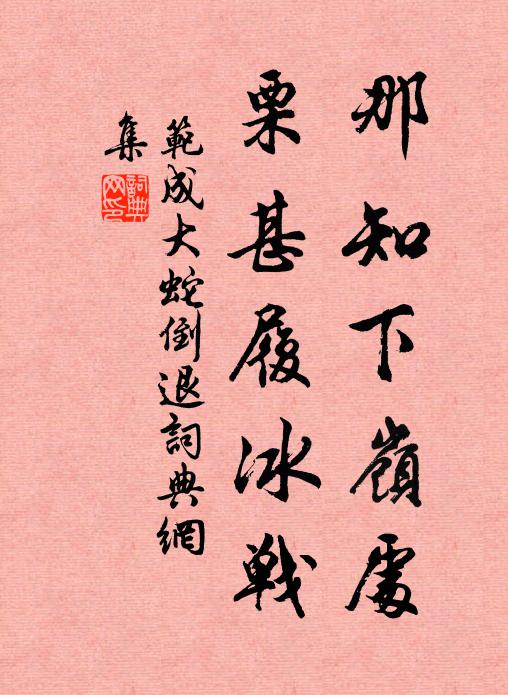 那知下嶺處
栗甚履冰戦
範成大蛇倒退詞典網
集
詞典网印